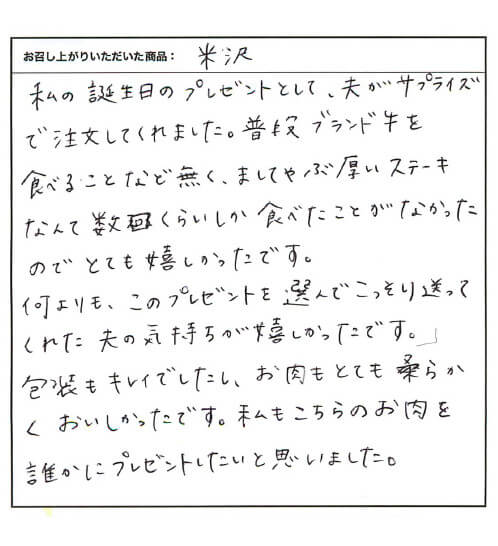 お召し上がりいただいた商品： 米沢
私の誕生日のプレゼントとして、夫がサプライズ
で注文してくれました。普段ブランド牛を
食べることなど無く、ましてやぶ厚いステーキ
なんて数回くらいしか食べたことがなかった
のでとても嬉しかったです。
何よりも、このプレゼントを選んでこっそり送って
くれた夫の気持ちが嬉しかったです。」
包装もキレイでしたし、お肉もとても柔らか
くおいしかったです。私もこちらのお肉を
誰かにプレゼントしたいと思いました。